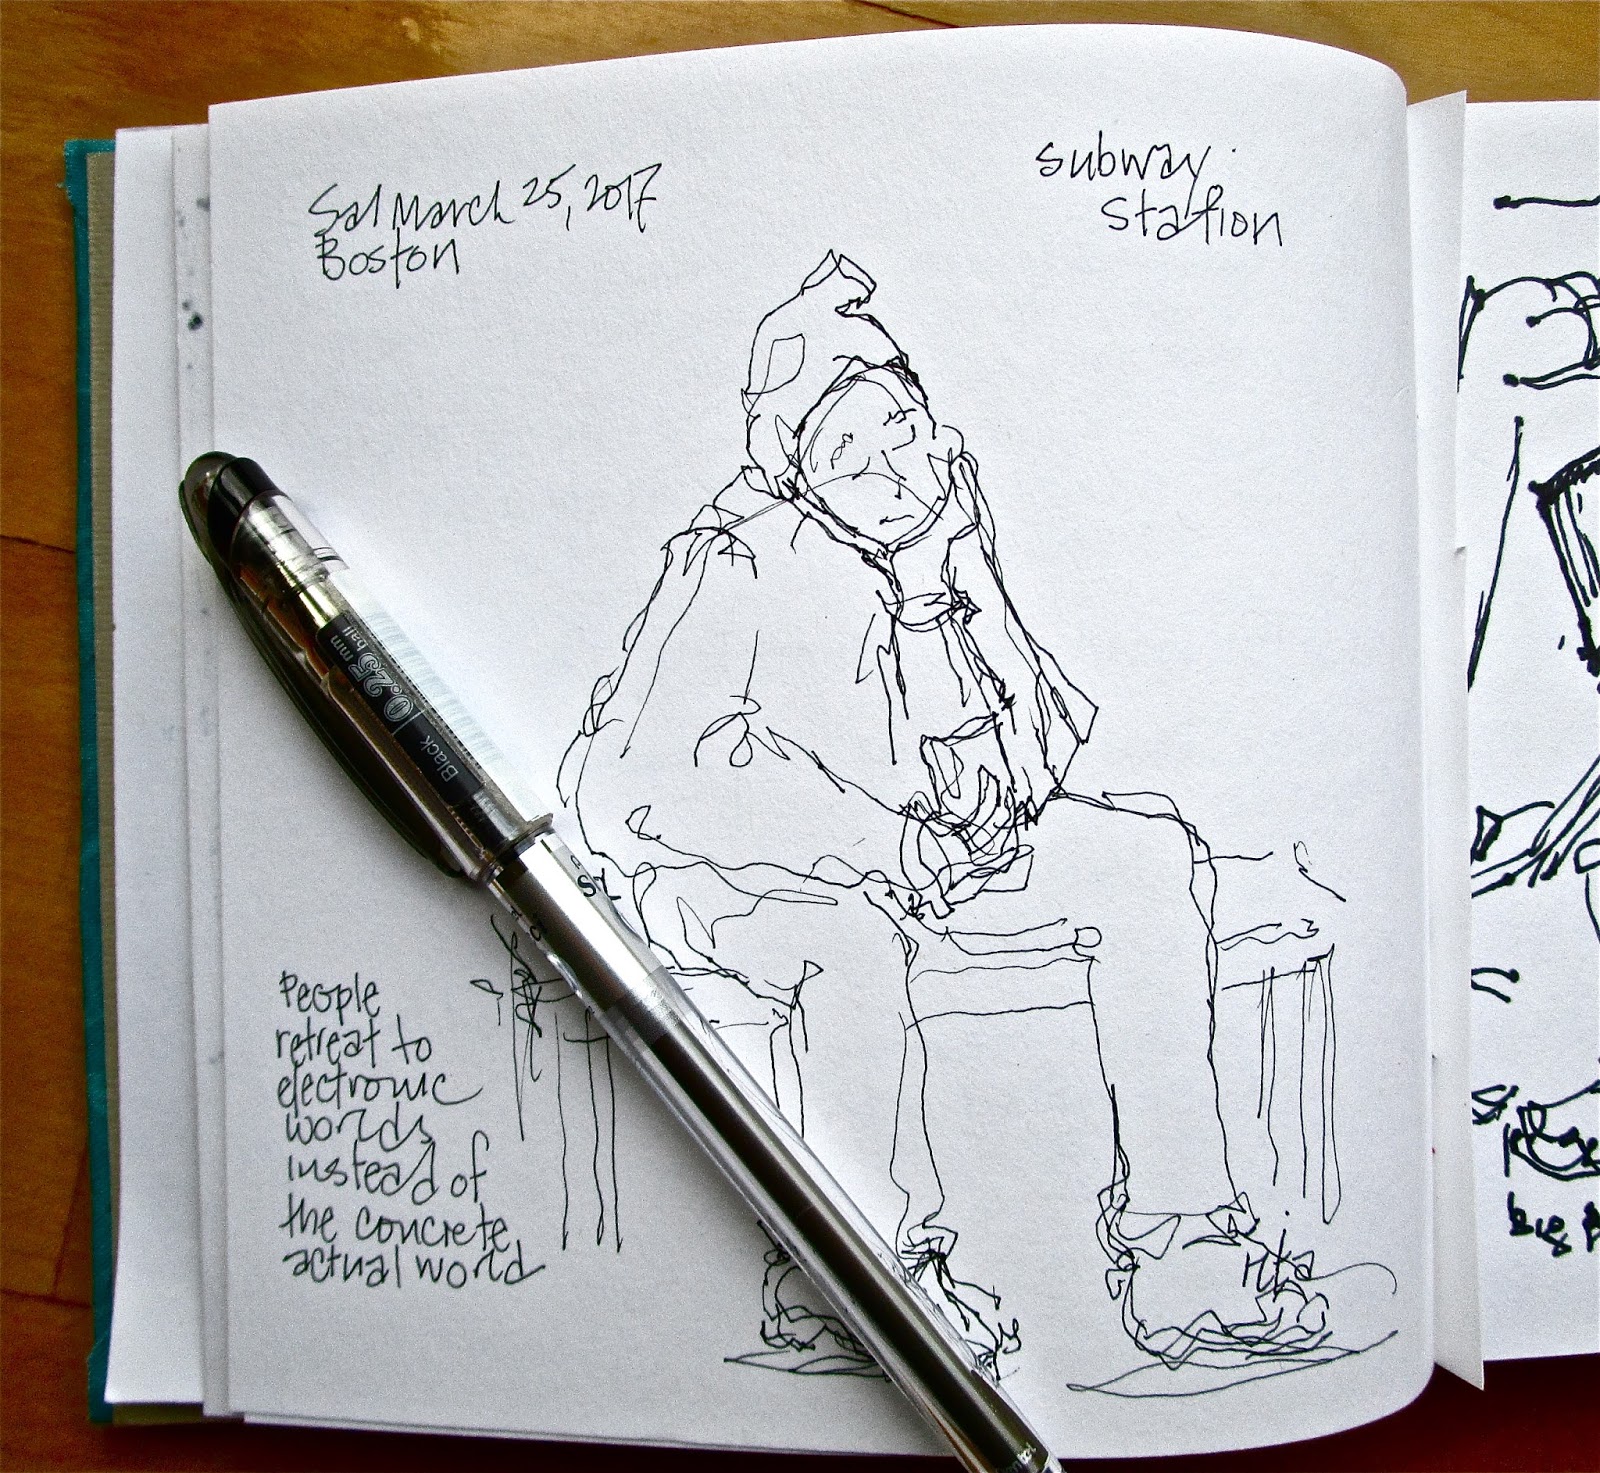 Sat March 25, 2017
Boston
subway
Station
People
retreat to
electronic
worlds
instead of
the concrete
actual world
0.25 mm
ball
Black
big